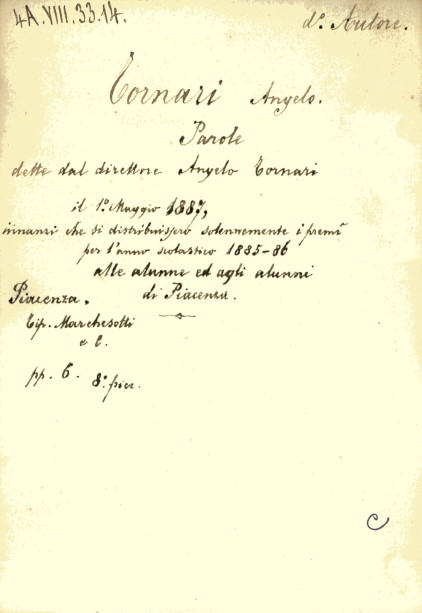 4A.VIII.33.14.
d.º Autore.
Tornari Angelo.
Parole
dette dal direttore Angelo Tornari
il 1.º Maggio 1887,
innanzi che si distribuissero solennemente i premî
per l'anno scolastico 1885-86
alle alunne ed agli alunni
di Piacenza.
Piacenza.
Tip. Marchesotti
e C.
pp. 6. 8.º picc.
C